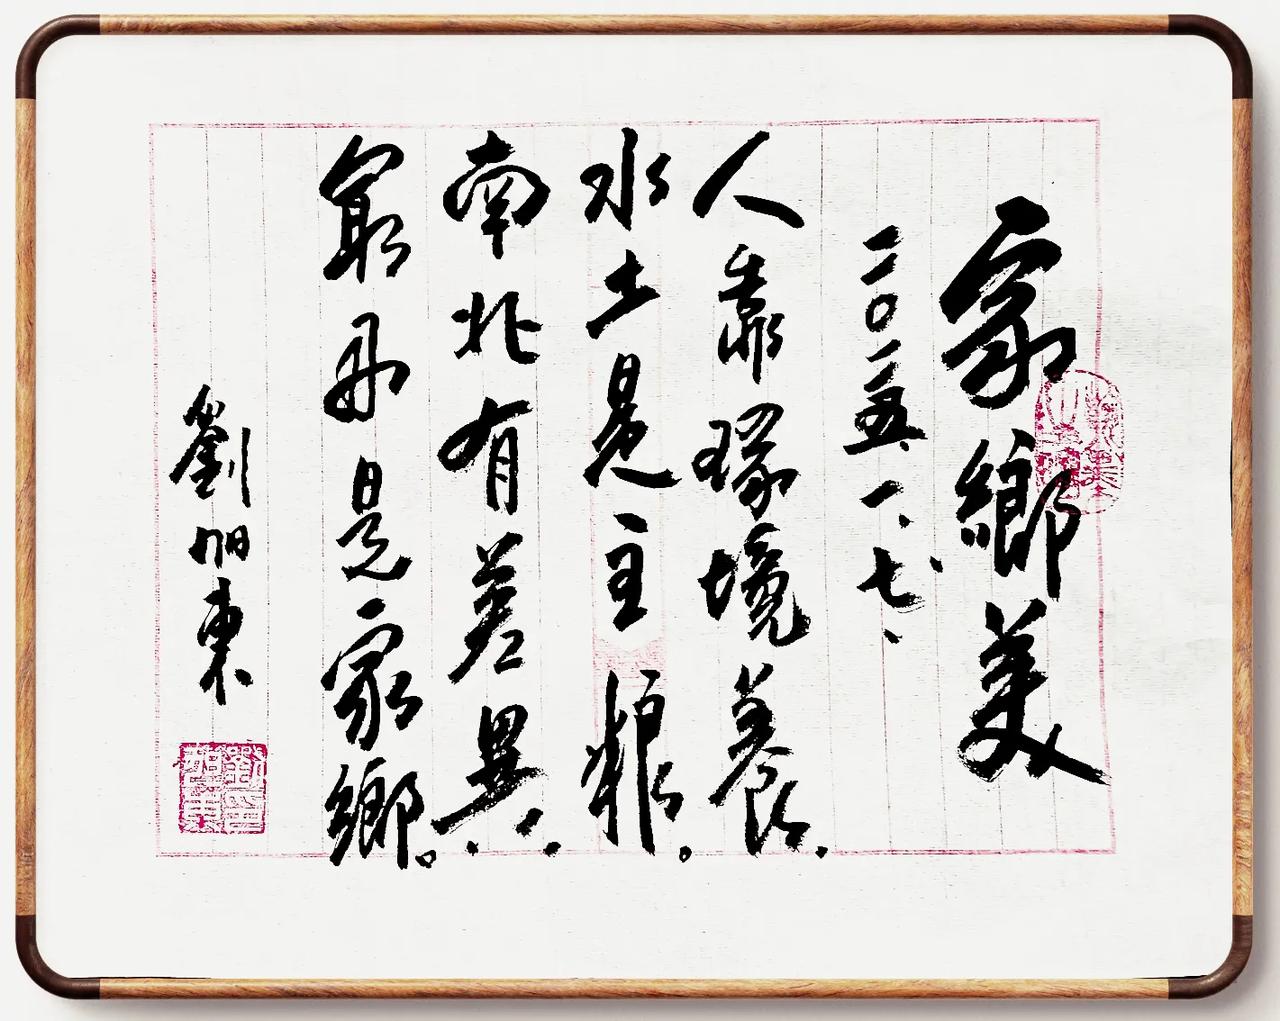 家鄉美
二〇二五.一.七.
人靠環境養,
水土是主粮。
南北有差異,
最好是家鄉。
劉旭東
劉旭東印